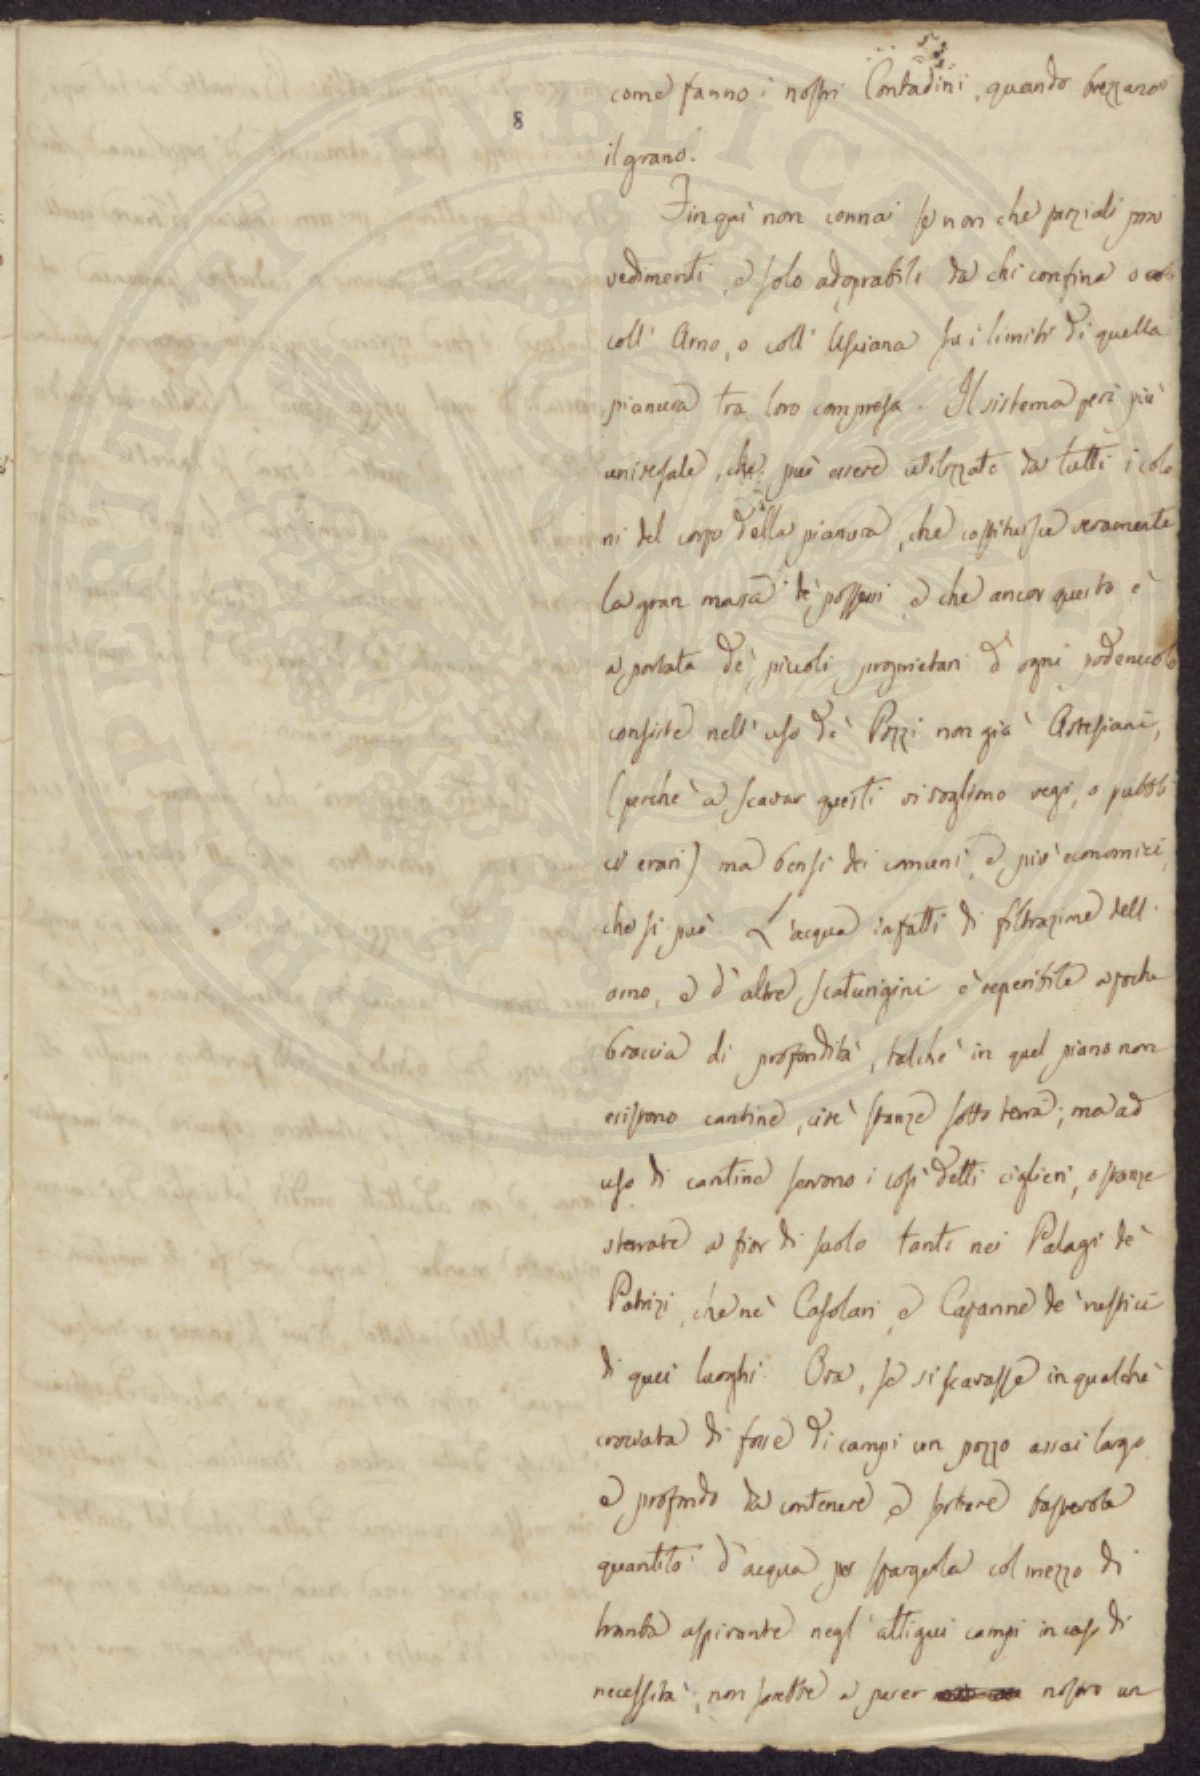 8
come fanno i nostri Contadini, quando brezzano
il grano.
Fin quì non connai se non che parziali prov
vedimenti, e solo adoprabili da chi confina o
coll' Arno, o coll' Usciana su i limiti di quella
pianura tra loro compresa. Il sistema però più
universale, che può essere utilizzato da tutti i colo
ni del corpo della pianura, che costituisce veramente
la gran massa de' possessi e che ancor questo è
a portata de' piccoli proprietari d' ogni poderuccolo
consiste nell' uso de' Pozzi non già Artesiani,
(perchè a scavar questi vi vogliono regi, o pubbli
ci erari) ma bensi dei comuni, e più economici
che si può. L'acqua infatti di filtrazione dell'
arno, e d' altre scaturigini è reperibile a poche
braccia di profondità, talchè in quel piano non
esistono cantine, cioè stanze sotto terra; ma ad
uso di cantine servono i così detti ciglieri, o stanze
sterrate a fior di suolo tanto nei Palagi de'
Patrizi, che ne' Casolari, e Capanne de' rustici
di quei luoghi. Ora, se si scavasse in qualche
crociata di fosse di campi un pozzo assai largo
e profondo da contenere e bastevole
quantità d'acqua per spargerla col mezzo di
tromba aspirante negl' attigui campi in caso di
necessità; non sarebbe a parer nostro un